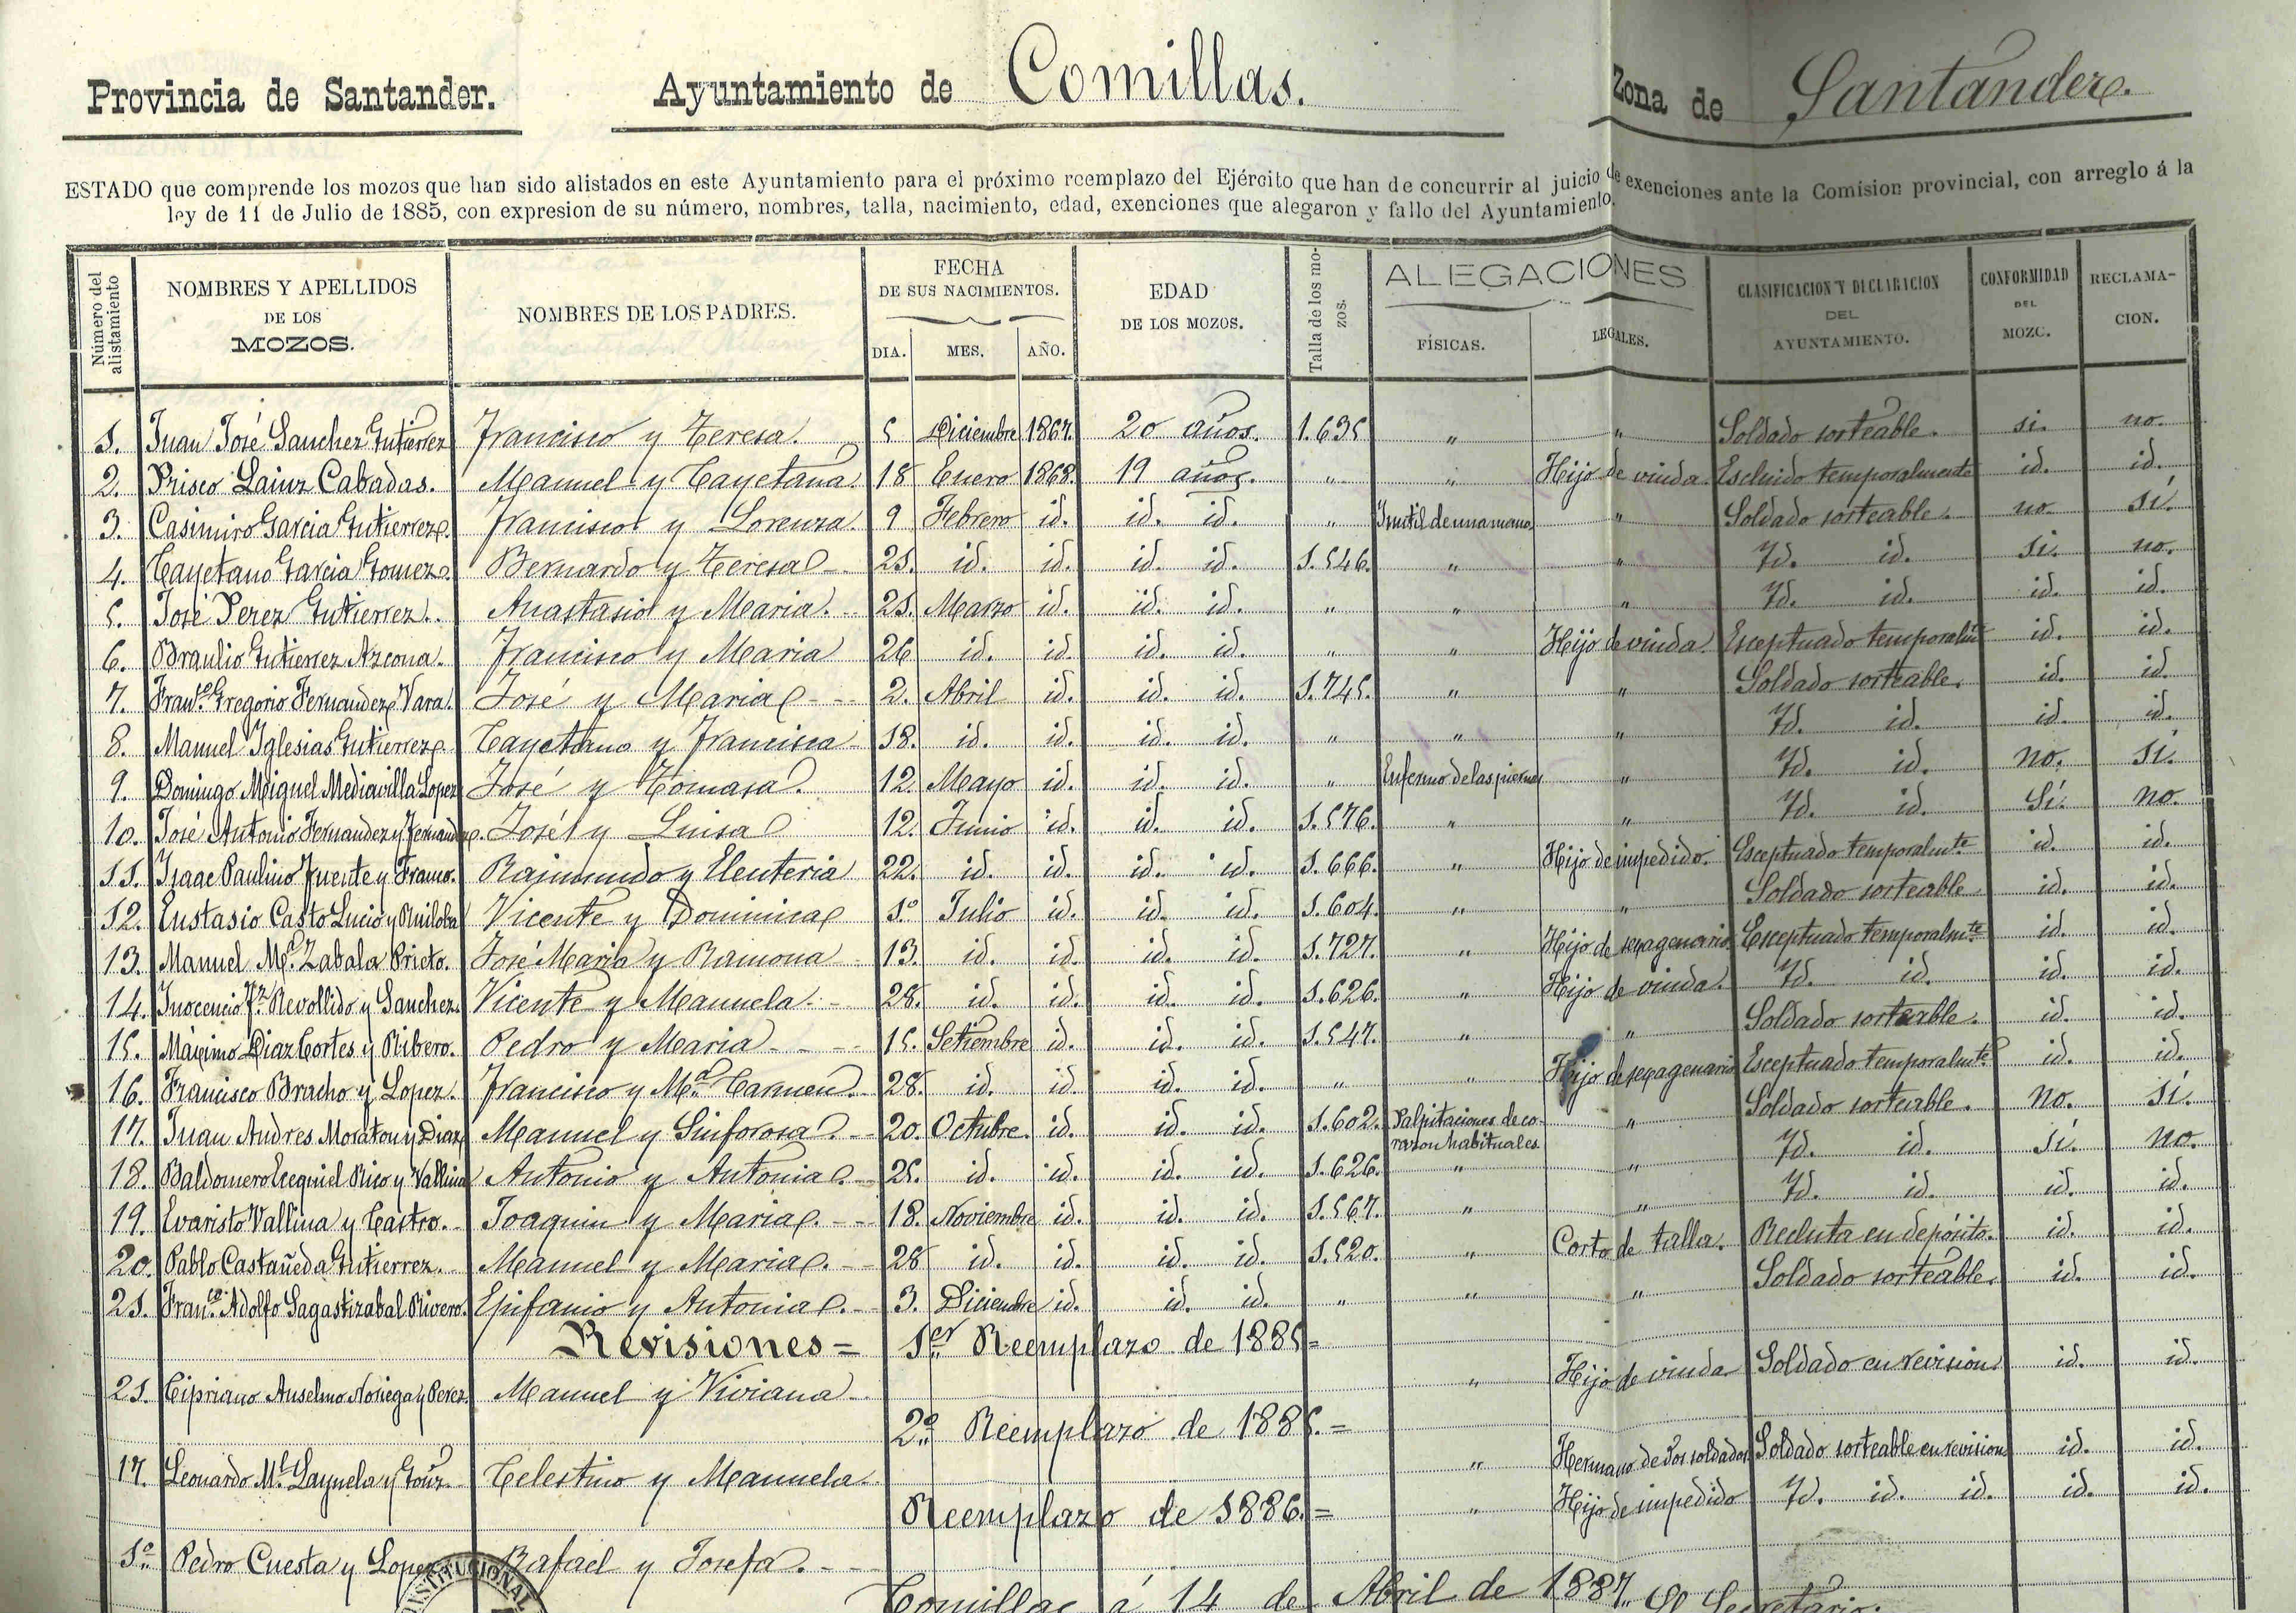 Provincia de Santander. Ayuntamiento de Comillas. Zona de Santander.
ESTADO que comprende los mozos que han sido alistados en este Ayuntamiento para el próximo reemplazo del Ejército que han de concurrir al juicio de exenciones ante la Comision provincial, con arreglo á la
ley de 11 de Julio de 1885, con expresion de su número, nombres, talla, nacimiento, edad, exenciones que alegaron y fallo del Ayuntamiento.
Número del alistamiento
NOMBRES Y APELLIDOS
DE LOS
MOZOS.
NOMBRES DE LOS PADRES.
FECHA
DE SUS NACIMIENTOS.
DIA. MES. AÑO.
EDAD
DE LOS MOZOS.
Talla de los mo-
zos.
ALEGACIONES
FÍSICAS. LEGALES.
CLASIFICACION Y DECLARACION
DEL
AYUNTAMIENTO.
CONFORMIDAD
DEL
MOZO.
RECLAMA-
CION.
1. Juan José Sanchez Gutierrez Francisco y Teresa. 5 Diciembre 1867. 20 años. 1.635 " " Soldado sorteable. si. no.
2. Prisco Lainz Cabadas. Manuel y Cayetana 18 Enero 1868. 19 años. " " Hijo de viuda. Escluido temporalmente id. id.
3. Casimiro Garcia Gutierrez. Francisco y Lorenza. 9 Febrero id. id. id. " Inutil de una mano " Soldado sorteable. no. sí.
4. Cayetano Garcia Gomez. Bernardo y Teresa 21. id. id. id. id. 1.546. " " Id. id. si. no.
5. José Perez Gutierrez. Anastasio y Maria. 21. Marzo id. id. id. " " " Id. id. id. id.
6. Braulio Gutierrez Azcona. Francisco y Maria 26 id. id. id. id. " " Hijo de viuda. Esceptuado temporalmte id. id.
7. Franco Gregorio Fernandez Vara. José y Maria 2. Abril id. id. id. 1.745. " " Soldado sorteable. id. id.
8. Manuel Iglesias Gutierrez. Cayetano y Francisca 18. id. id. id. id. " " " Id. id. id. id.
9. Domingo Miguel Mediavilla Lopez José y Tomasa. 12. Mayo id. id. id. " Enfermo de las piernas " Id. id. no. sí.
10. José Antonio Fernandez y Fernandez. José y Luisa 12. Junio id. id. id. 1.576. " " Id. id. Sí. no.
11. Isaac Paulino Fuente y Framo. Raimundo y Eleuteria 22. id. id. id. id. 1.666. " Hijo de impedido. Esceptuado temporalmte id. id.
12. Eustasio Casto Lucio y Ruiloba Vicente y Dominica 1º Julio id. id. id. 1.604. " " Soldado sorteable id. id.
13. Manuel Mª Zabala Prieto. José Maria y Ramona 13. id. id. id. id. 1.727. " Hijo de sexagenario Esceptuado temporalmte id. id.
14. Inocencio Fz Revollido y Sanchez. Vicente y Manuela 28. id. id. id. id. 1.626. " Hijo de viuda. Id. id. id. id.
15. Máximo Diaz Cortes y Ribero. Pedro y Maria 15. Setiembre id. id. id. 1.547. " " Soldado sorteable. id. id.
16. Francisco Bracho y Lopez. Francisco y Mª Carmen. 28. id. id. id. id. " " Hijo de sexagenario Esceptuado temporalmte id. id.
17. Juan Andres Moraton y Diaz Manuel y Sinforosa. 20. Octubre. id. id. id. 1.602. Palpitaciones de co-
razon habituales " Soldado sorteable. no. sí.
18. Baldomero Ecequiel Rico y Vallina Antonio y Antonia. 25. id. id. id. id. 1.626. " " Id. id. sí. no.
19. Evaristo Vallina y Castro. Joaquin y Maria. 18. Noviembre id. id. id. 1.567. " " Id. id. id. id.
20. Pablo Castañeda Gutierrez. Manuel y Maria. 28 id. id. id. id. 1.520. " Corto de talla. Recluta en depósito. id. id.
21. Franco Adolfo Sagastizabal Rivero. Epifanio y Antonia. 3. Diciembre id. id. id. " " " Soldado sorteable. id. id.
Revisiones= 1er Reemplazo de 1885=
21. Cipriano Anselmo Noriega y Perez. Manuel y Viviana " Hijo de viuda Soldado en revision id. id.
2º Reemplazo de 1885.=
17. Leonardo Celestino y Manuela. " Hermano de dos soldados Soldado sorteable en revision id. id.
Reemplazo de 1886.=
1º Pedro Cuesta y Lopez Rafael y Josefa. " Hijo de impedido Id. id. id. id. id.
Comillas á 14 de Abril de 1887. El Secretario.
STITUCIONAL